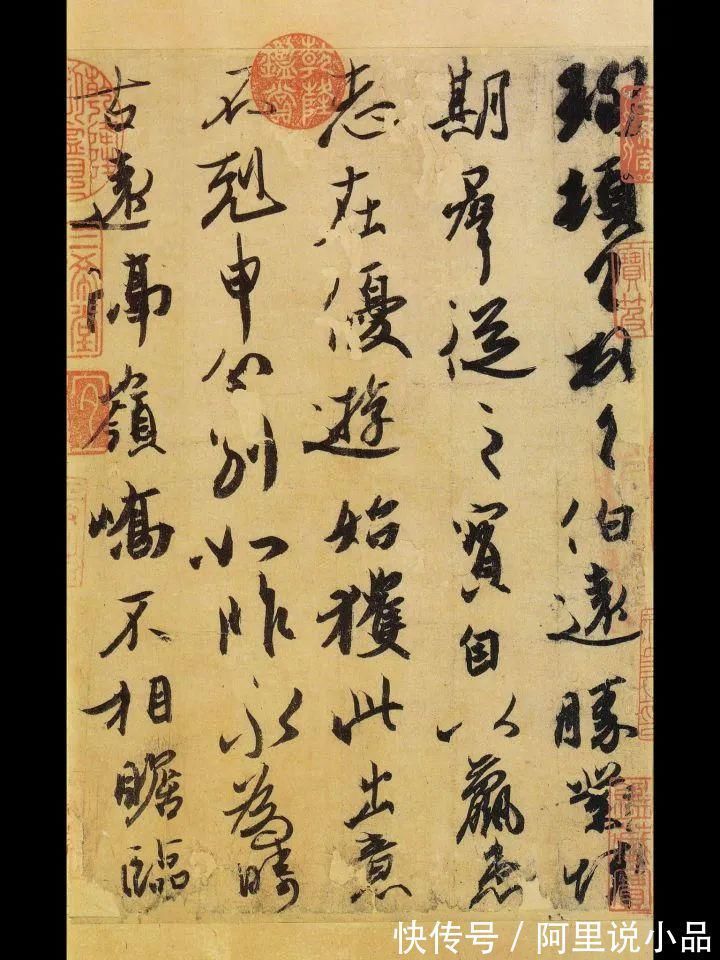 珣頓首頓首伯遠勝業情
期羣從之寶自以羸患
志在優遊始獲此出意
不剋申分別如昨永為疇
古遠隔嶺嶠不相瞻臨
快传号 / 阿里说小品